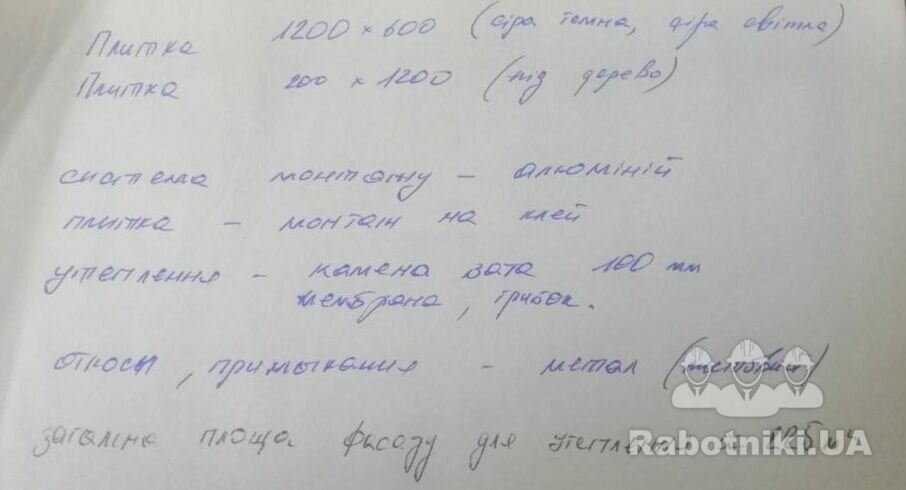 Плитка 1200 × 600 (сіра темна, сіра світла)
Плитка 200 × 1200 (під дерево)
система монтажу – алюміній
плитка – монтаж на клей
утеплення – камена вата 100 мм
мембрана, грибок.
откосы, примыкания – метал
загальна площа фасаду для утеплення
Rabotniki.UA